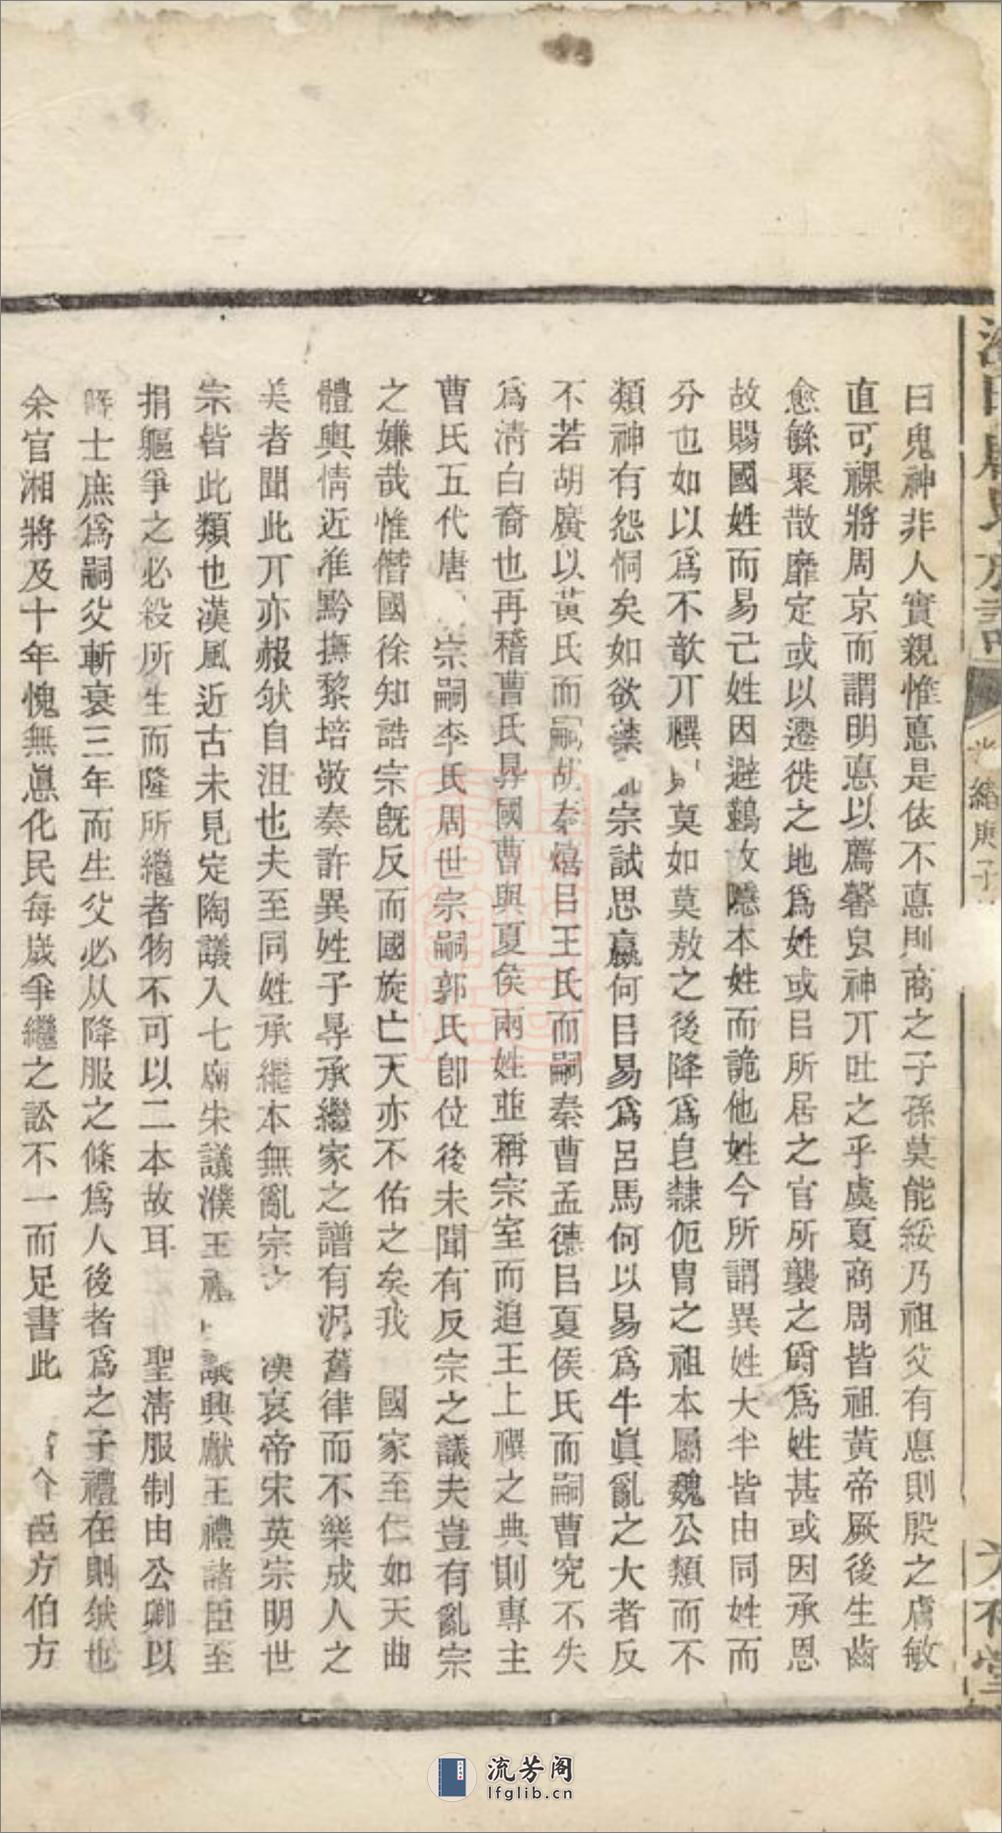 曰鬼神非人實親惟惪是依不惪則商之子孫莫能綏乃祖父有惪則殷之膚敏
直可祼將周京而謂明惪以薦馨㒵神丌吐之乎虞夏商周皆祖黃帝厥後生齒
愈緐聚散靡定或以遷徙之地爲姓或㠯所居之官所襲之爵爲姓甚或因承恩
故賜國姓而易己姓因避讎故隱本姓而詭他姓今所謂異姓大半皆由同姓而
分也如以爲不歆丌禩莫如莫敖之後降爲皂隸伌胄之祖本屬魏公類而不
類神有怨恫矣如欲禁亂宗試思嬴何㠯易爲呂馬何以易爲牛眞亂之大者反
不若胡廣以黃氏而嗣胡秦熺㠯王氏而嗣秦曹孟德㠯夏侯氏而嗣曹究不失
爲淸白裔也再稽曹氏㝵國曹與夏侯兩姓並稱宗室而追王上禩之典則專主
曹氏五代唐宗嗣李氏周世宗嗣郭氏卽位後未聞有反宗之議夫豈有亂宗
之嫌哉惟僭國徐知誥宗旣反而國旋亡天亦不佑之矣我國家至仁如天曲
體輿情近准黔撫黎培敬奏許異姓子㝵承繼家之譜有況舊律而不樂成人之
美者聞此丌亦赧然自沮也夫至同姓承繼本無亂宗漢哀帝宋英宗明世
宗皆此類也漢風近古未見定陶議入七廟朱議濮王禮議興獻王禮諸臣至
捐軀爭之必殺所生而隆所繼者物不可以二本故耳聖淸服制由公卿以
降士庶爲嗣父斬衰三年而生父必从降服之條爲人後者爲之子禮在則然也
余官湘將及十年愧無惪化民每歲爭繼之訟不一而足書此亝方伯方
緒庚子